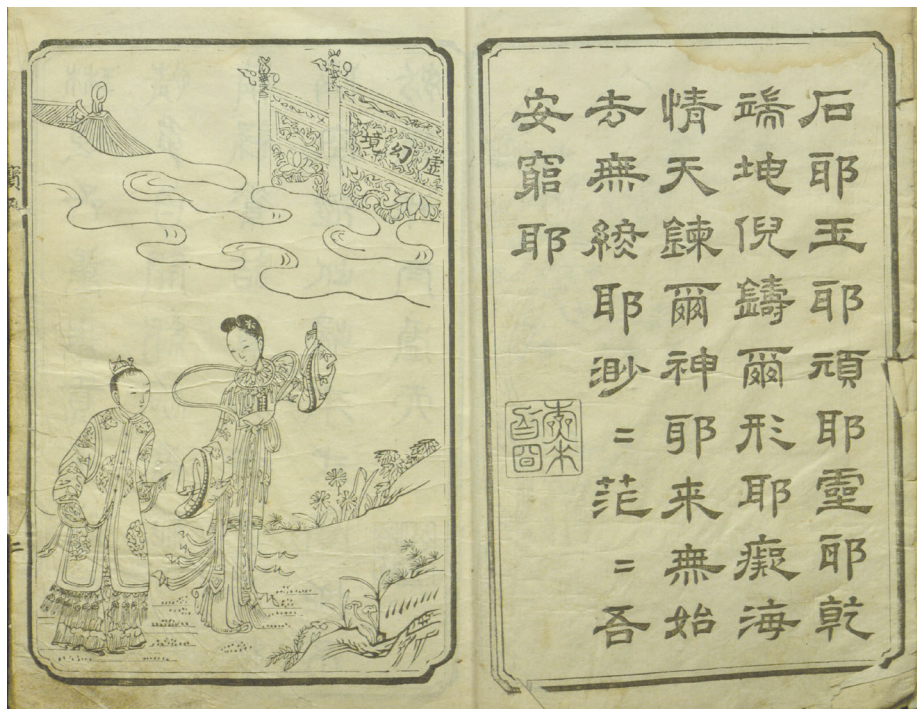 石耶玉耶頑耶靈耶乾
端坤倪鑄爾形耶癡海
情天鍊爾神耶来無始
去無終耶渺〻茫〻吾
安窮耶
虛幻境